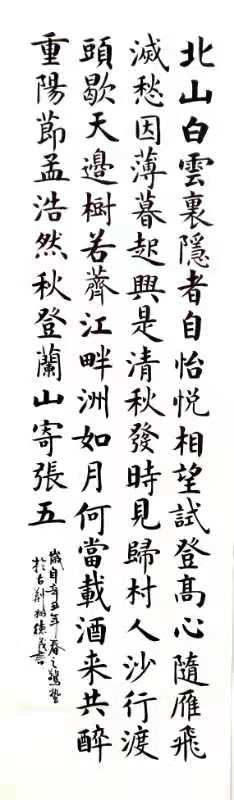 北山白雲裏隱者自怡悦相望試登髙心隨雁飛
滅愁因薄暮起興是清秋發時見歸村人沙行渡
頭歇天邊樹若薺江畔洲如月何當載酒来共醉
重陽節孟浩然秋登蘭山寄張五
歲自辛丑年春之驚蟄
於古荆州德書